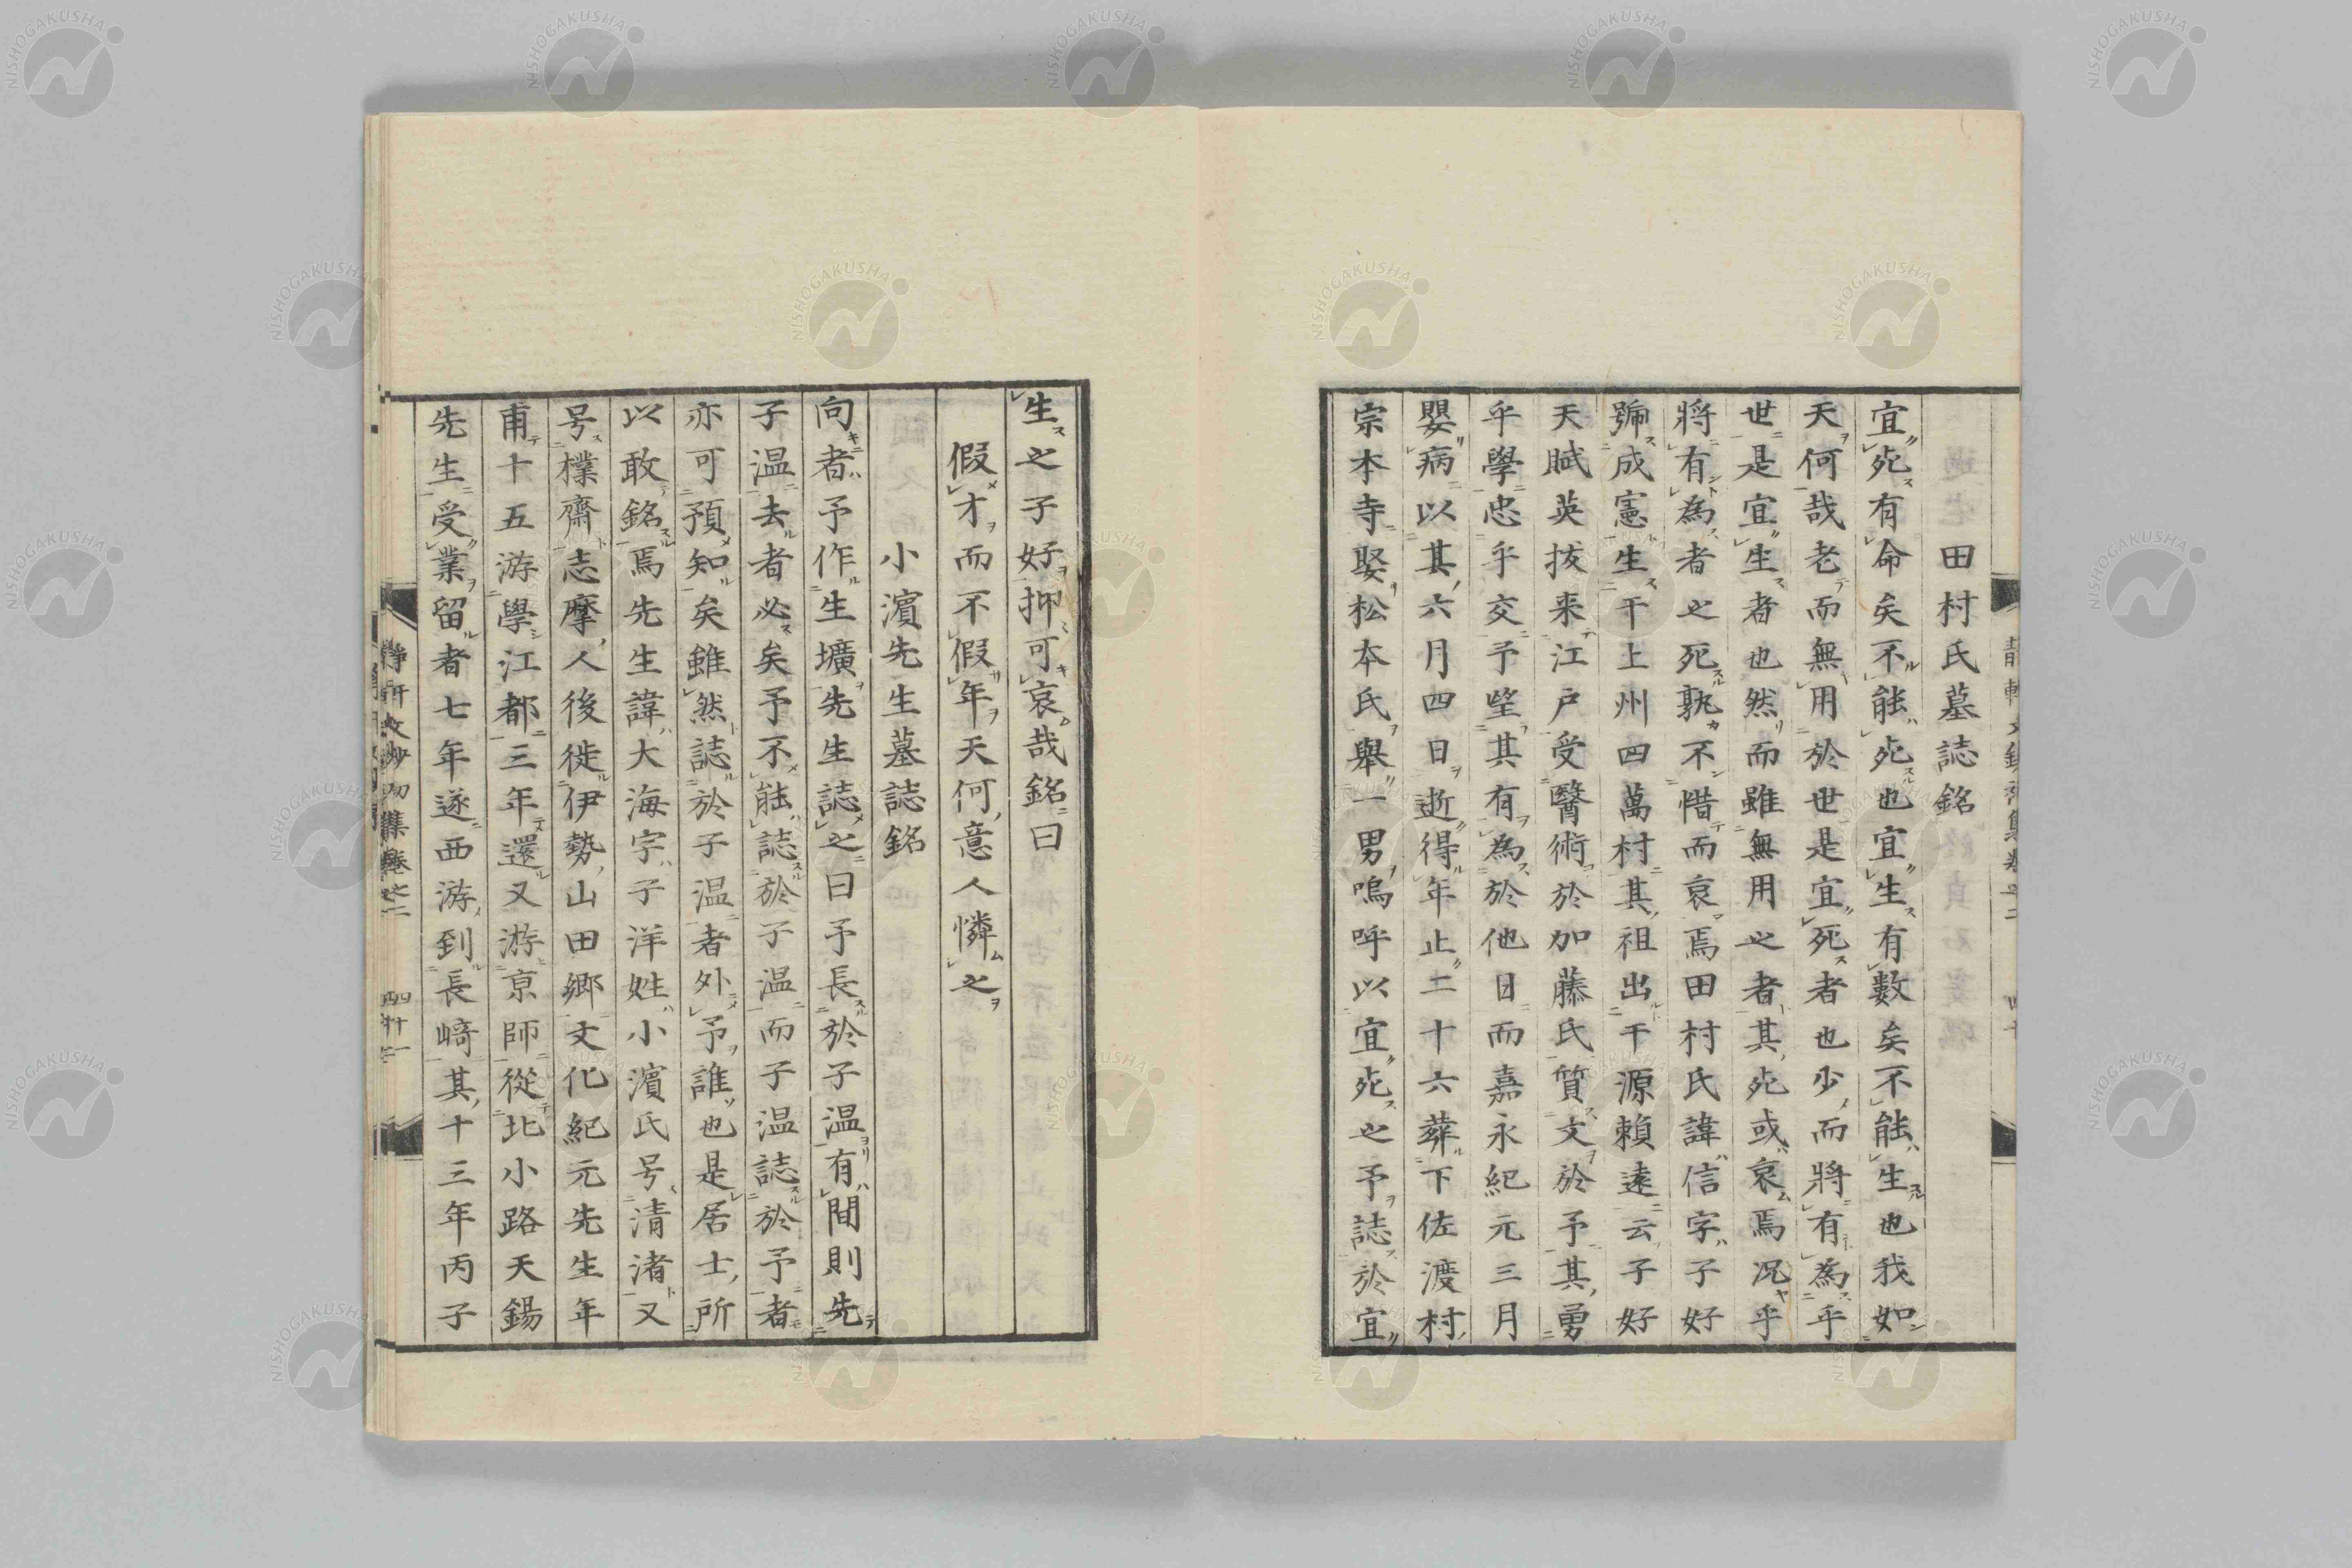 田村氏墓誌銘
宜死有命矣不能死也宜生有數矣不能生也我如
天何哉老而無用於世是宜死者也少而將有為乎
世是宜生者也然而雖無用之者其死或哀焉況乎
將有為者之死孰不惜而哀焉田村氏諱信字子好
號成憲生于上州四萬村其祖出于源賴遠云子好
天賦英拔来江戸受醫術於加藤氏質文於予其勇
乎學忠乎交予望其有為於他日而嘉永紀元三月
嬰病以其六月四日逝得年止二十六葬下佐渡村
宗本寺娶松本氏舉一男嗚呼以宜死之予誌於宜
生之子好抑可哀哉銘曰
假才而不假年天何意人憐之
小濱先生墓誌銘
向者予作生壙先生誌之曰予長於子温有間則先
子温去者必矣予不能誌於子温而子温誌於予者
亦可預知矣雖然誌於子温者外予誰也是居士所
以敢銘焉先生諱大海字子洋姓小濱氏号清渚又
号樸齋志摩人後徙伊勢山田郷文化紀元先生年
甫十五游學江都三年還又游京師從北小路天錫
先生受業留者七年遂西游到長﨑其十三年丙子
靜軒文鈔初集卷之二
四十一